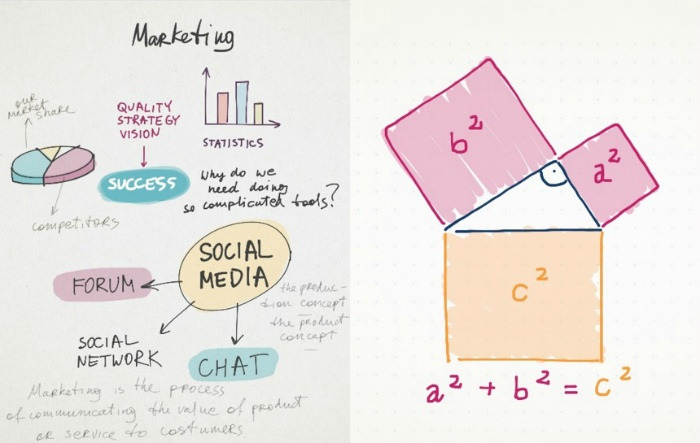 Marketing
our
market share
QUALITY
STRATEGY
VISION
STATISTICS
SUCCESS
Why do we
need doing
so complicated tools?
competitors
SOCIAL
MEDIA
FORUM
the produc-
tion concept
the product
concept
SOCIAL
NETWORK
CHAT
Marketing is the process
of communicating the value of product
or service to costumers
b²
a²
c²
a² + b² = c²